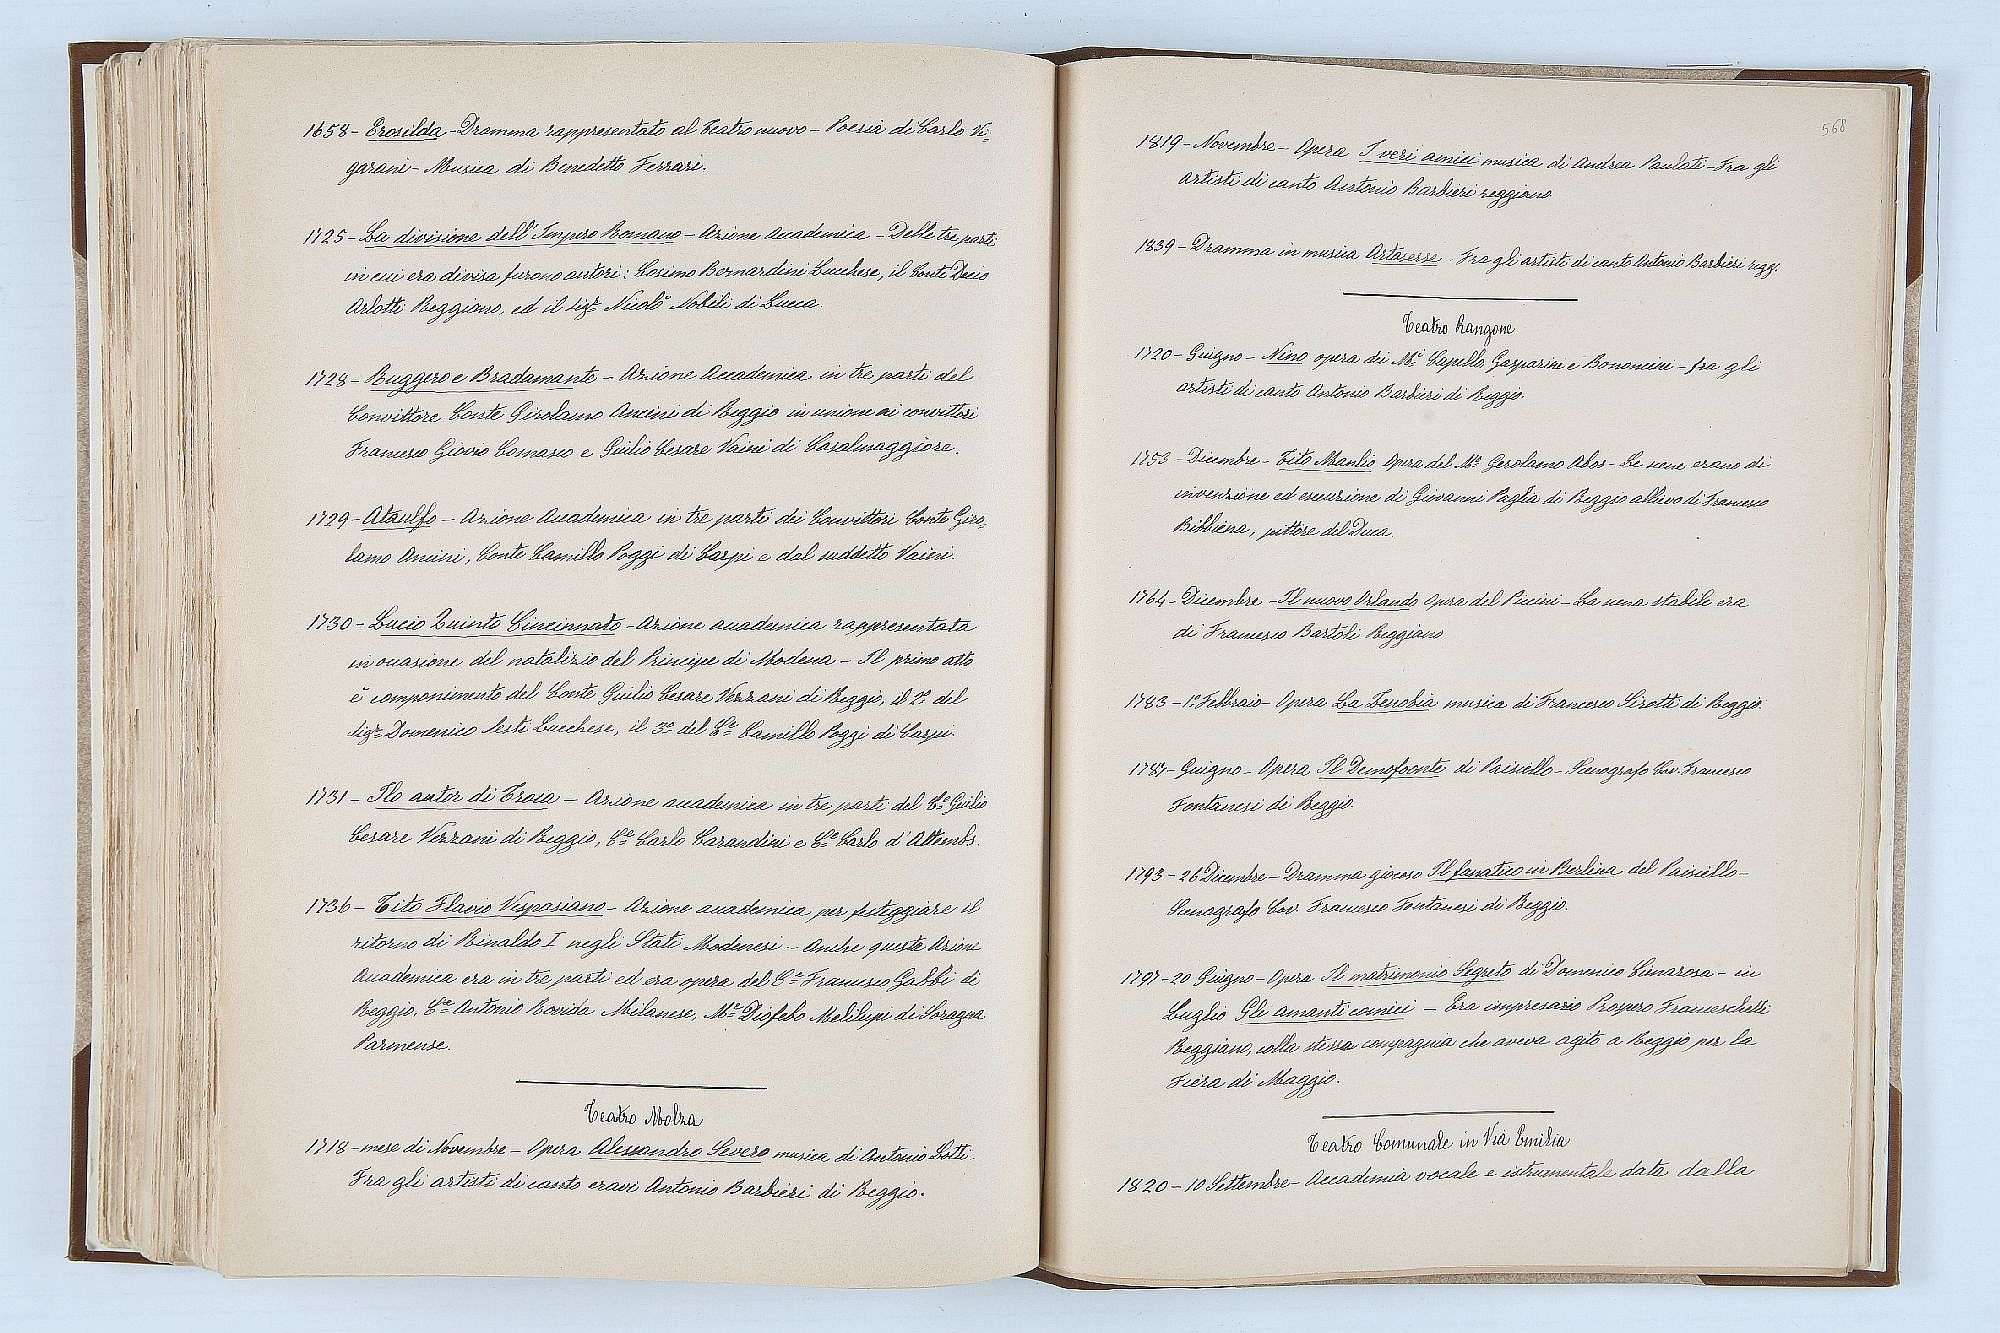 1658 - Erosilda - Dramma rappresentato al Teatro nuovo - Poesia di Carlo Vi-
garani - Musica di Benedetto Ferrari.
1725 - La divisione dell'Impero Romano - Azione Accademica - Delle tre parti
in cui era divisa furono autori: Cosimo Bernardini Lucchese, il Conte Decio
Arlotti Reggiano, ed il sigr. Nicolò Nobili di Lucca
1728 - Ruggero e Bradamante - Azione Accademica in tre parti del
Convittore Conte Girolamo Ancini di Reggio in unione ai convittori
Francesco Giovio Comasco e Giulio Cesare Vaini di Casalmaggiore.
1729 - Ataulfo - Azione Accademica in tre parti dei Convittori Conte Giro-
lamo Ancini, Conte Camillo Poggi di Carpi e dal suddetto Vaini.
1730 - Lucio Quinto Cincinnato - Azione accademica rappresentata
in occasione del natalizio del Principe di Modena - Il primo atto
è componimento del Conte Giulio Cesare Vezzani di Reggio, il 2° del
sigr. Domenico Lucchese, il 3° del Cte Camillo Poggi di Carpi.
1731 - Ilo autor di Troia - Azione accademica in tre parti del Cte Giulio
Cesare Vezzani di Reggio, Cte Carlo Carandini e Cte Carlo d'Attembs.
1736 - Tito Flavio Vespasiano - Azione accademica per festeggiare il
ritorno di Rinaldo I negli Stati Modenesi - Anche questa Azione
Accademica era in tre parti ed era opera del Cte Francesco Gabbi di
Reggio, Cte Antonio Rovida Milanese, Mse Diofebo Melilupi di Soragna
Parmense.
Teatro Molza
1718 - mese di Novembre - Opera Alessandro Severo musica di Antonio Lotti.
Fra gli artisti di canto eravi Antonio Barbieri di Reggio.
568
1819 - Novembre - Opera I veri amici musica di Andrea Paulati - Fra gli
artisti di canto Antonio Barbieri reggiano
1839 - Dramma in musica Artaserse Fra gli artisti di canto Antonio Barbieri regg.
Teatro Rangone
1720 - Giugno - Nino opera dei Mi Capello Gasparini e Bononcini - fra gli
artisti di canto Antonio Barbieri di Reggio.
1753 - Dicembre - Tito Manlio Opera del Mo Gerolamo Abos - Le scene erano di
invenzione ed esecuzione di Giovanni Paglia di Reggio allievo di Francesco
Bibbiena, pittore del Duca.
1764 - Dicembre - Il nuovo Orlando Opera del Piccini - La scena stabile era
di Francesco Bartoli Reggiano
1783 - 1° Febbraio - Opera La Zenobia musica di Francesco Sirotti di Reggio.
1787 - Giugno - Opera Il Demofoonte di Paisiello - Scenografo Cav. Francesco
Fontanesi di Reggio.
1793 - 26 Dicembre - Dramma giocoso Il fanatico in Berlina del Paisiello -
Scenografo Cav. Francesco Fontanesi di Reggio.
1797 - 20 Giugno - Opera Il matrimonio Segreto di Domenico Cimarosa - in
Luglio Gli amanti comici - Era impresario Prospero Franceschetti
Reggiano, colla stessa compagnia che aveva agito a Reggio per la
Fiera di Maggio.
Teatro Comunale in Via Emilia
1820 - 10 Settembre - Accademia vocale e istrumentale data dalla